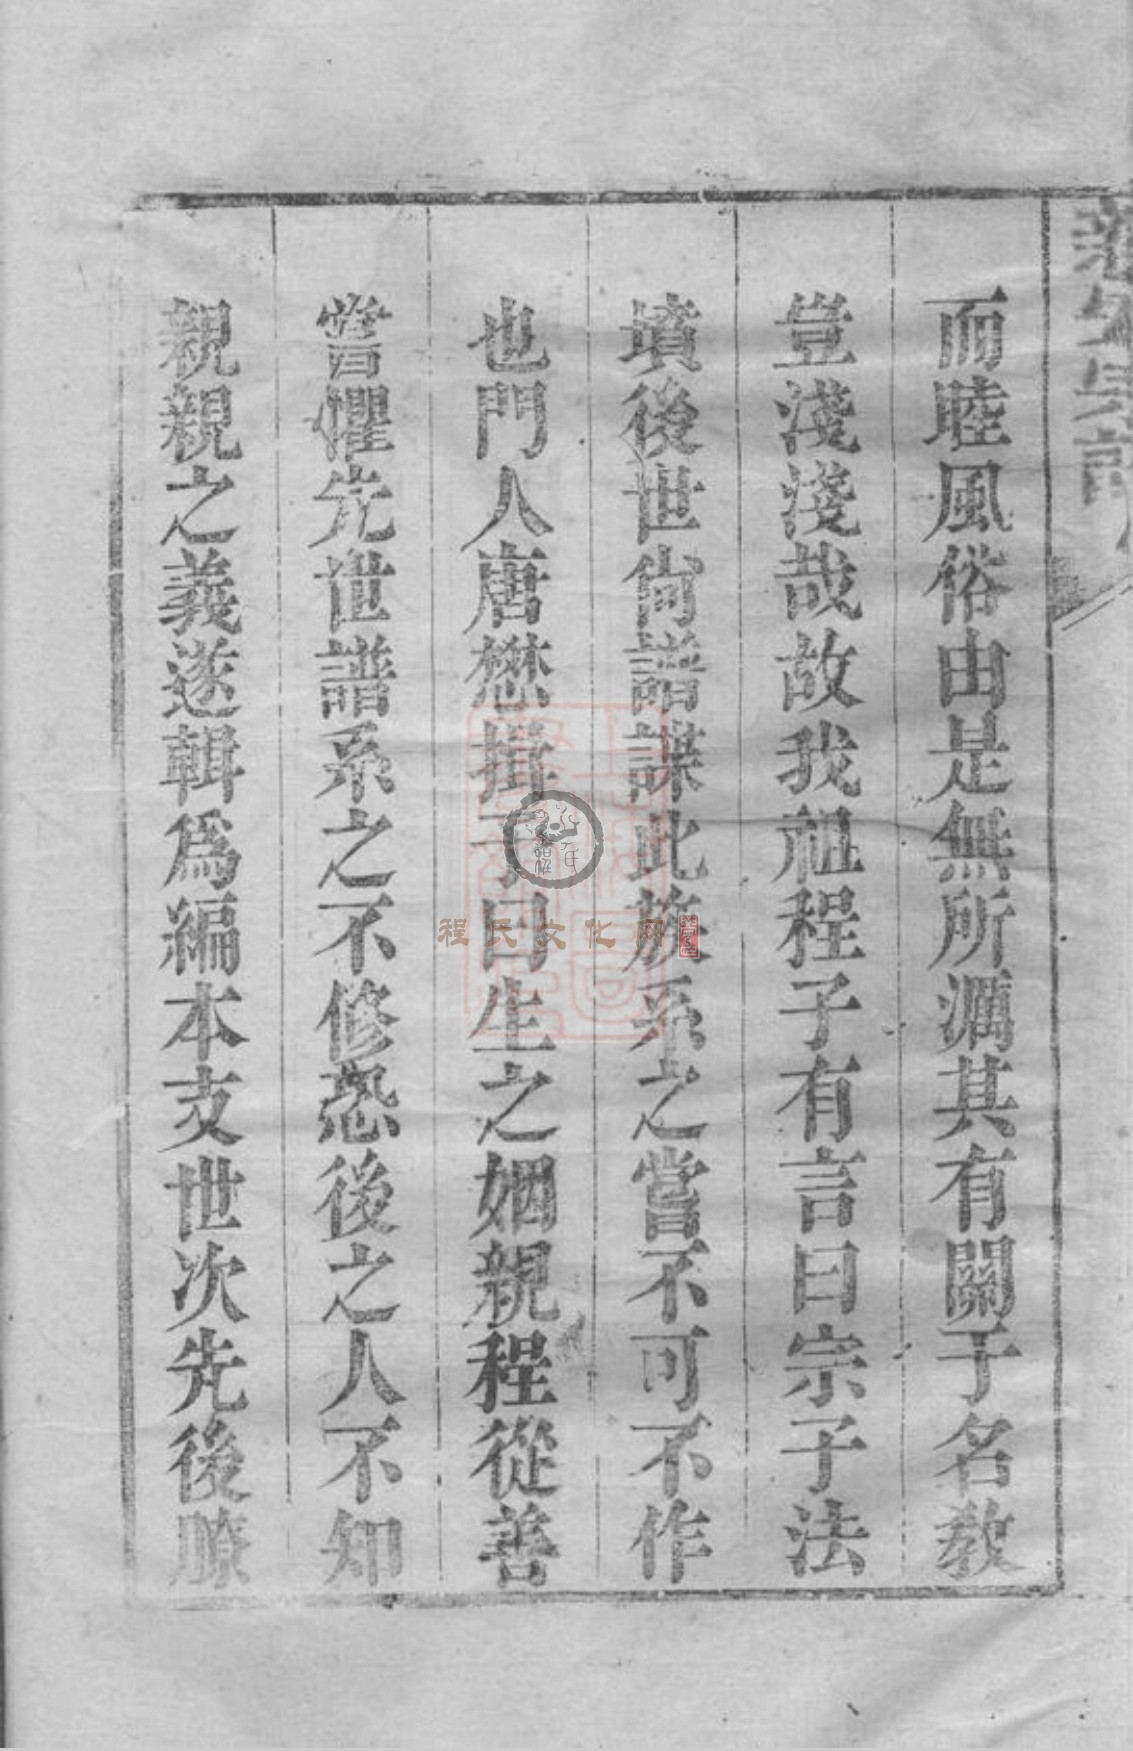 而睦風俗由是無所漓其有關于名教
豈淺淺哉故我祖程子有言曰宗子法
墳後世尙譜諜此族系之當不可不作
也門人唐懋揖予曰生之姻親程從善
嘗懼先世譜系之不修恐後之人不知
親親之義遂輯爲編本支世次先後瞭
程氏文化网